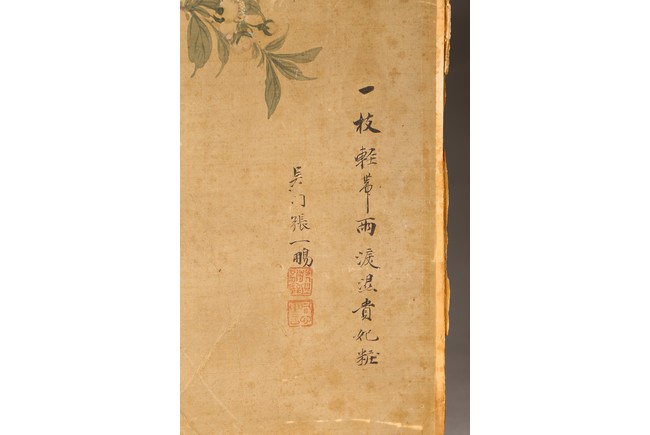 一枝軽帯雨淚湿貴妃粧
吳门張一鵬